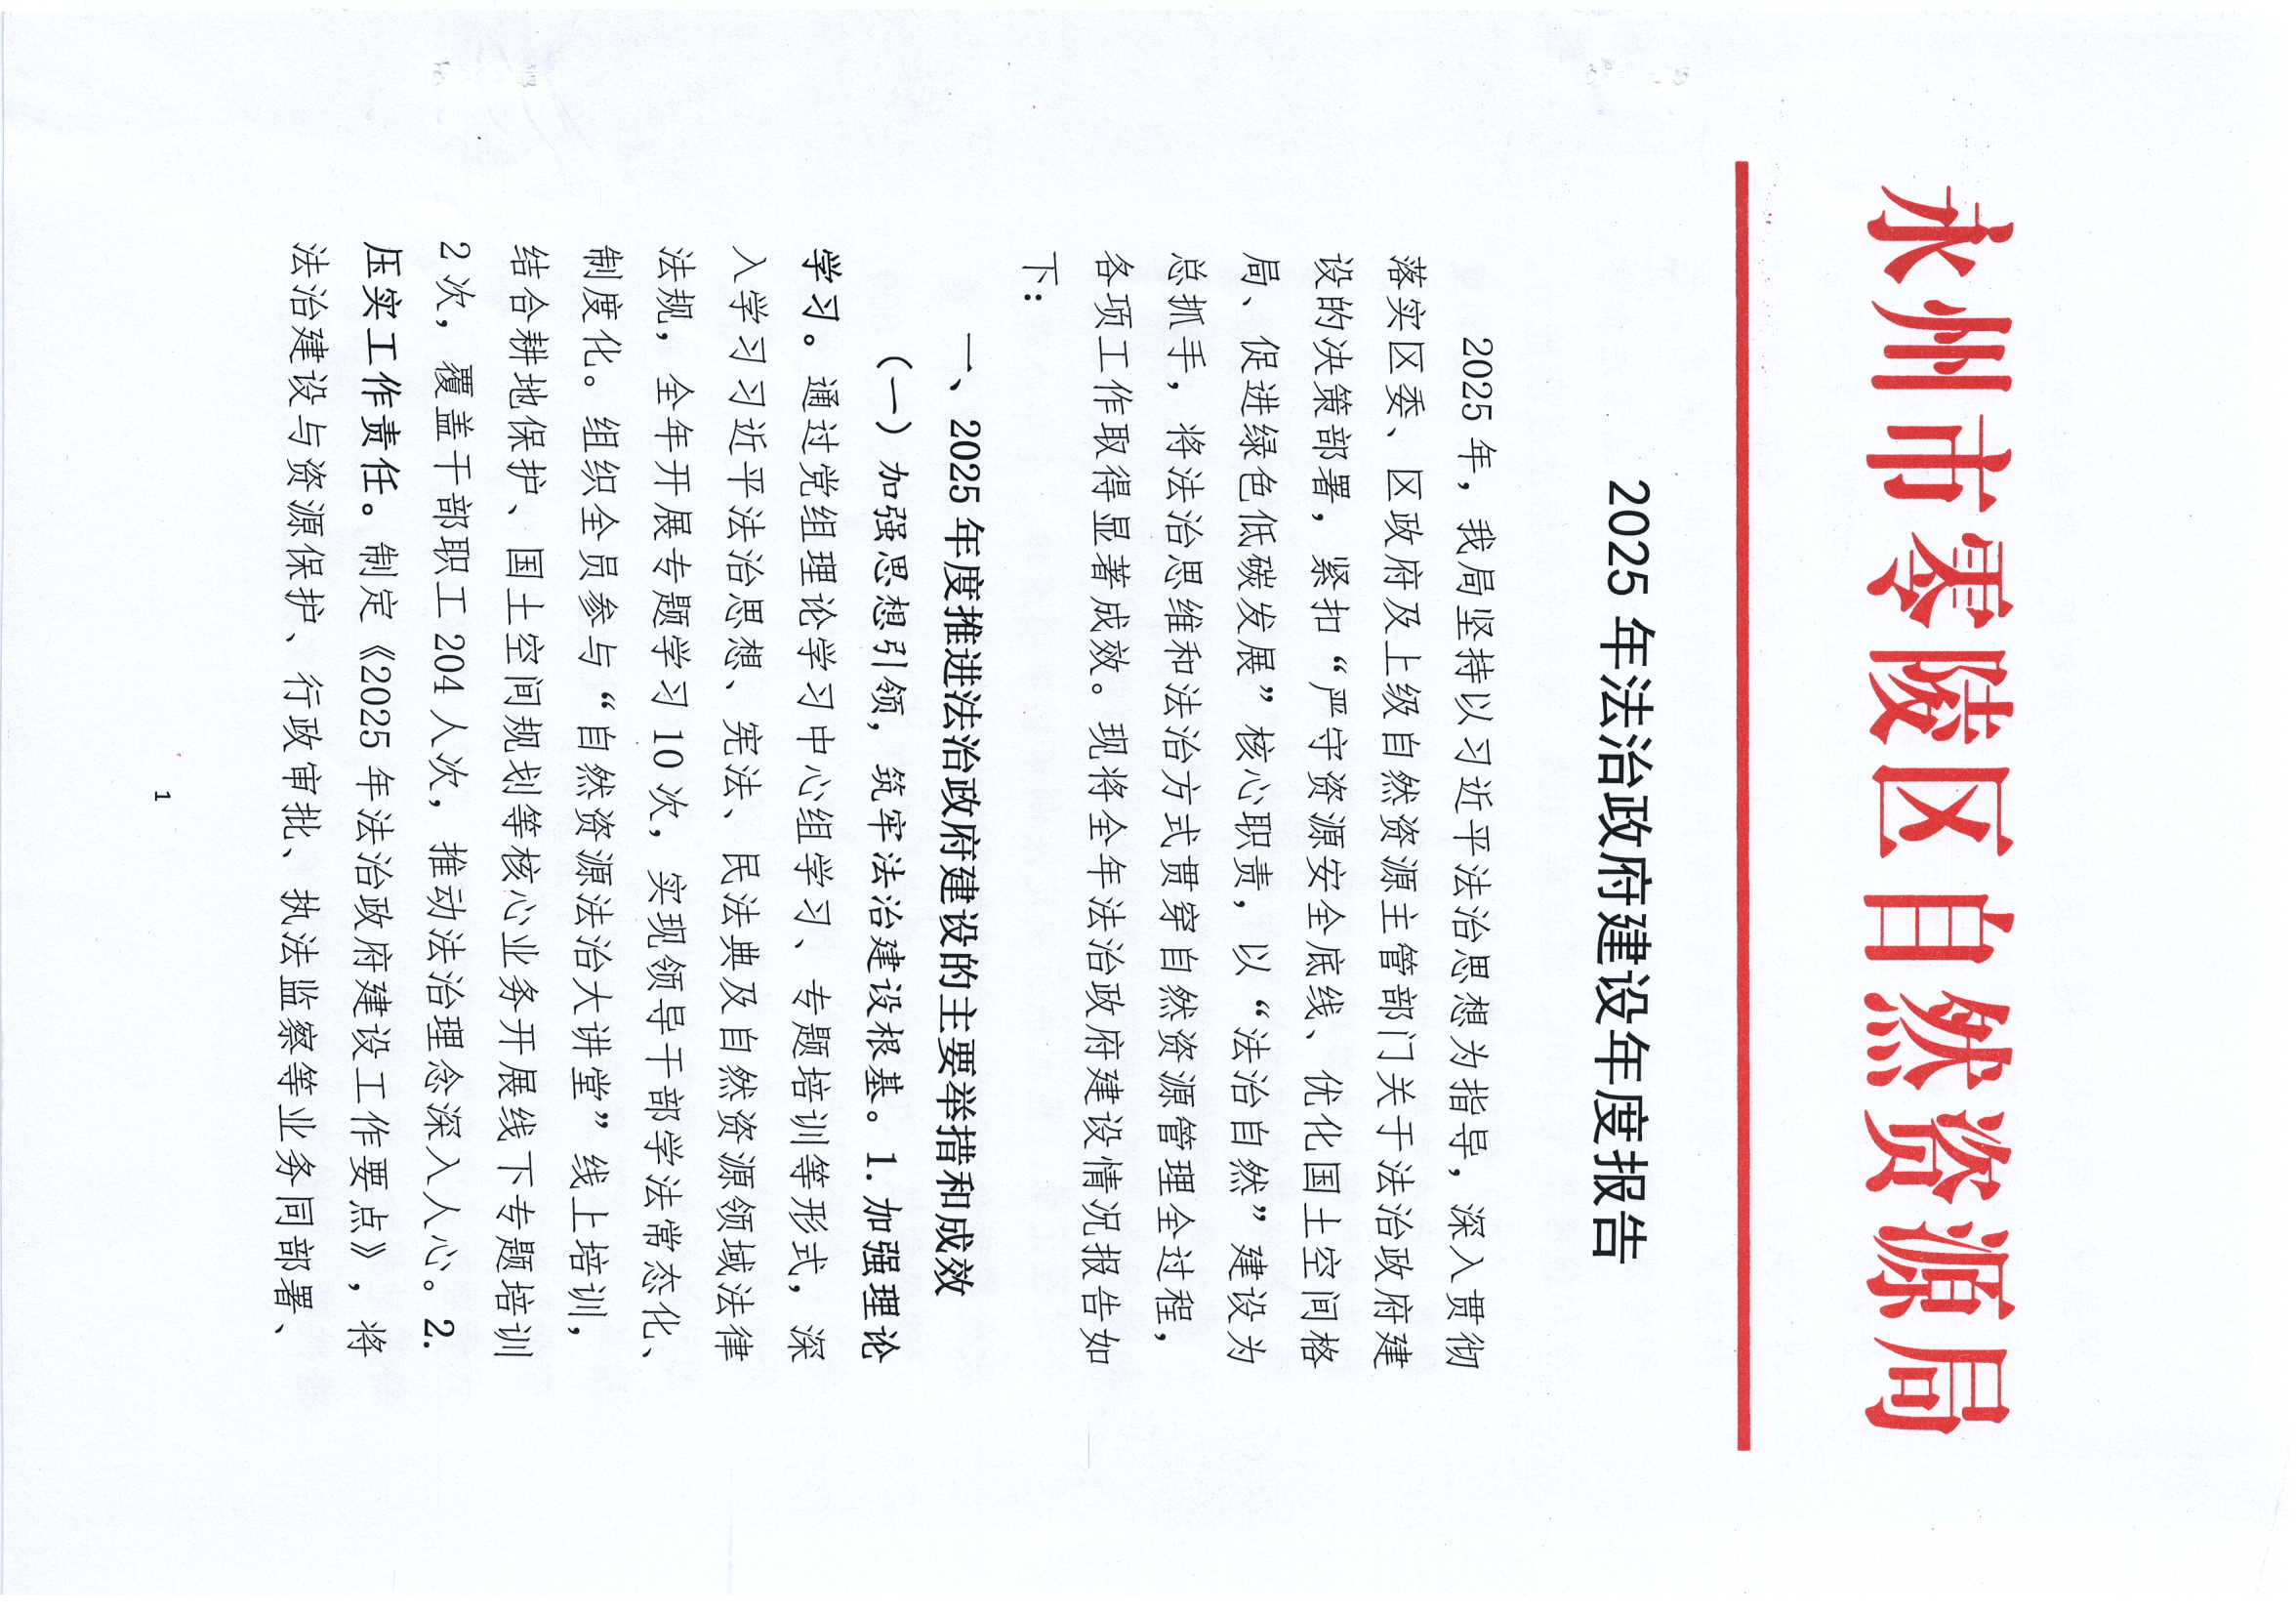 永州市零陵区自然资源局
2025 年法治政府建设年度报告
2025 年，我局坚持以习近平法治思想为指导，深入贯彻
落实区委、区政府及上级自然资源主管部门关于法治政府建
设的决策部署，紧扣“严守资源安全底线、优化国土空间格
局、促进绿色低碳发展”核心职责，以“法治自然”建设为
总抓手，将法治思维和法治方式贯穿自然资源管理全过程，
各项工作取得显著成效。现将全年法治政府建设情况报告如
下：
一、2025 年度推进法治政府建设的主要举措和成效
（一）加强思想引领，筑牢法治建设根基。1.加强理论
学习。通过党组理论学习中心组学习、专题培训等形式，深
入学习习近平法治思想、宪法、民法典及自然资源领域法律
法规，全年开展专题学习 10 次，实现领导干部学法常态化、
制度化。组织全员参与“自然资源法治大讲堂”线上培训，
结合耕地保护、国土空间规划等核心业务开展线下专题培训
2 次，覆盖干部职工 204 人次，推动法治理念深入人心。2.
压实工作责任。制定《2025 年法治政府建设工作要点》，将
法治建设与资源保护、行政审批、执法监察等业务同部署、
1